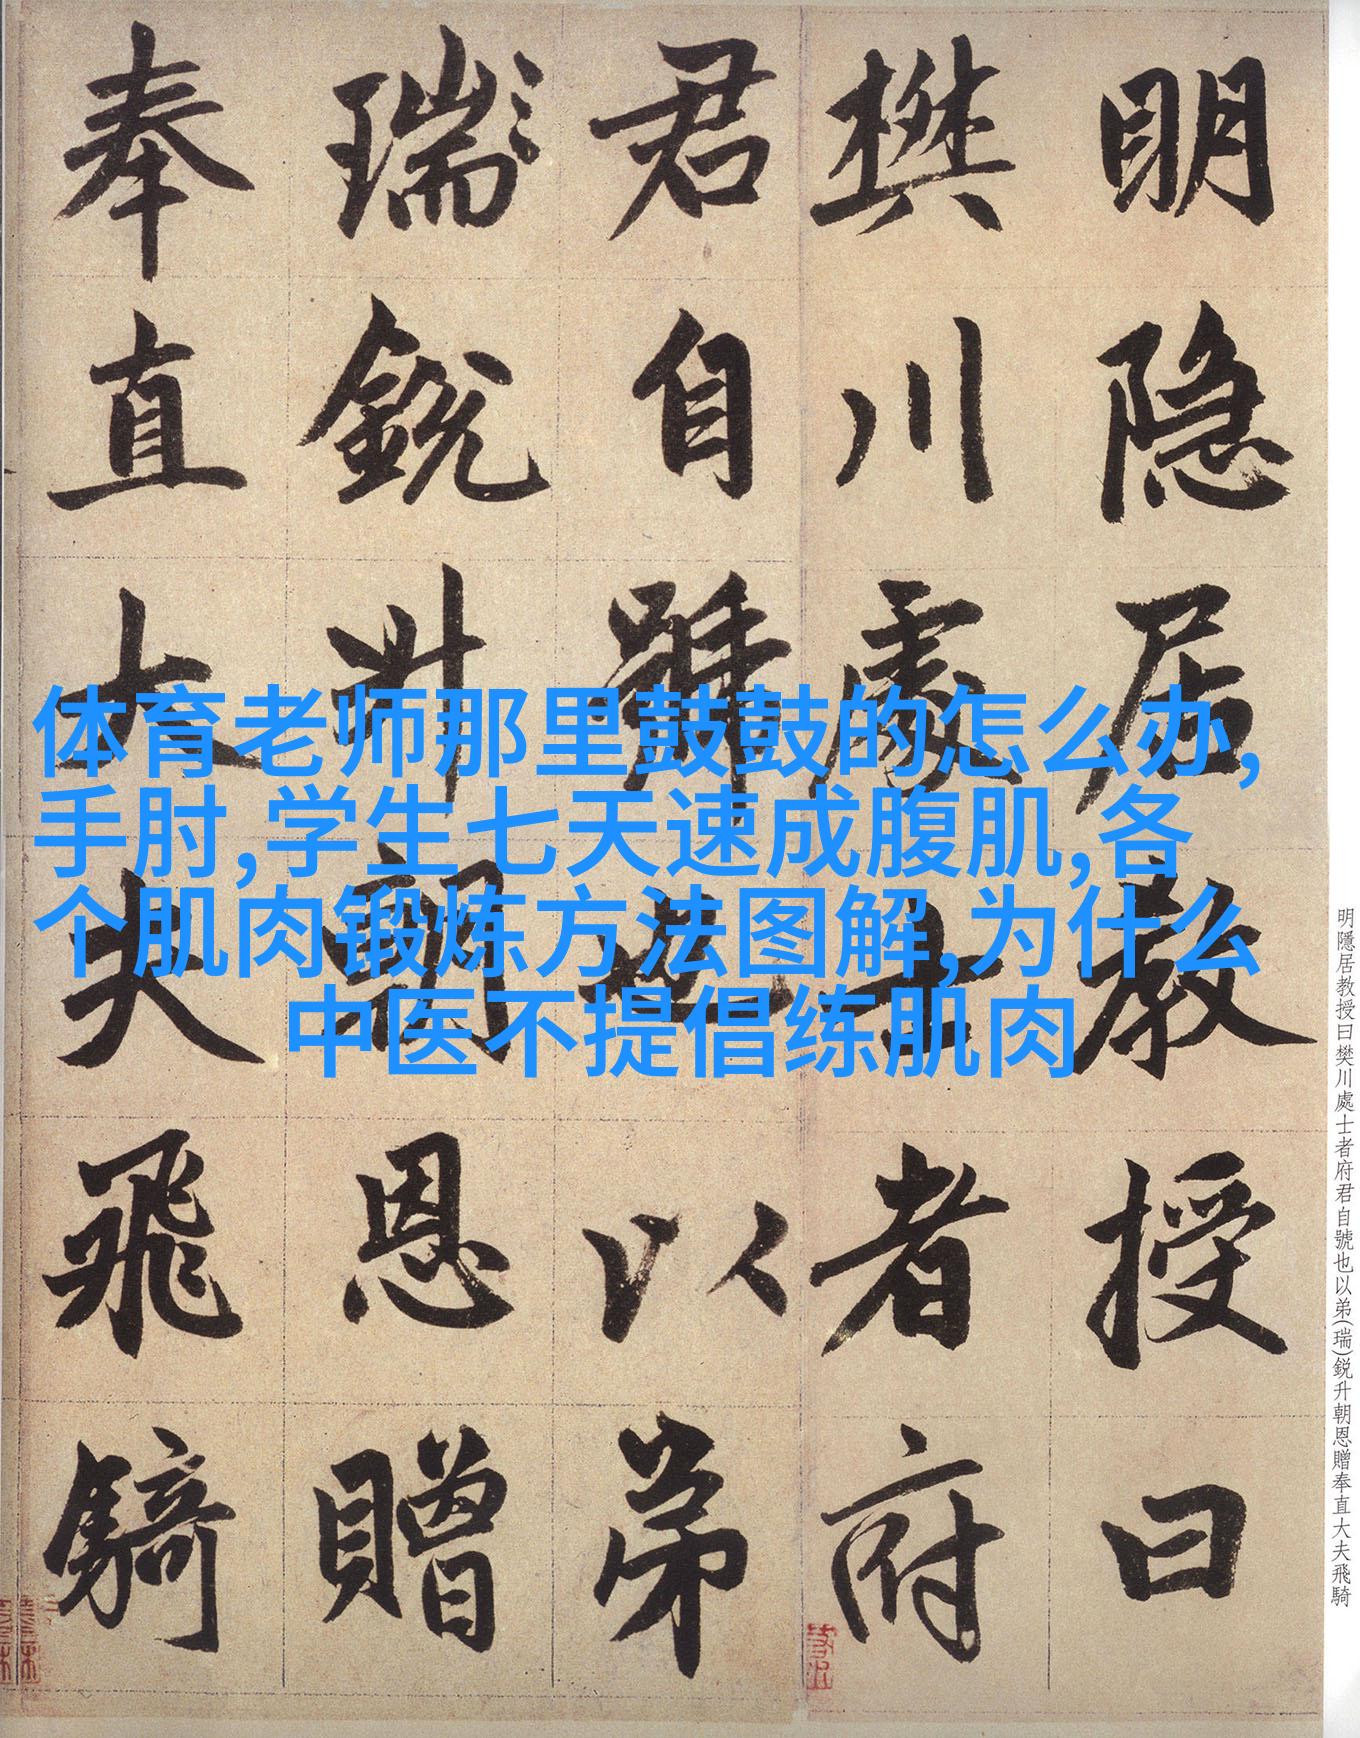 明隐居教授曰
樊川處士者府
君自號也以弟
瑞銳升朝恩贈
奉直大夫飛騎
体育老师那里鼓鼓的怎么办,
手肘,学生七天速成腹肌,各
个肌肉锻炼方法图解,为什么
中医不提倡练肌肉
明隱居教授曰樊川處士者府君自號也以弟(瑞)鋭升朝恩贈奉直大夫飛騎